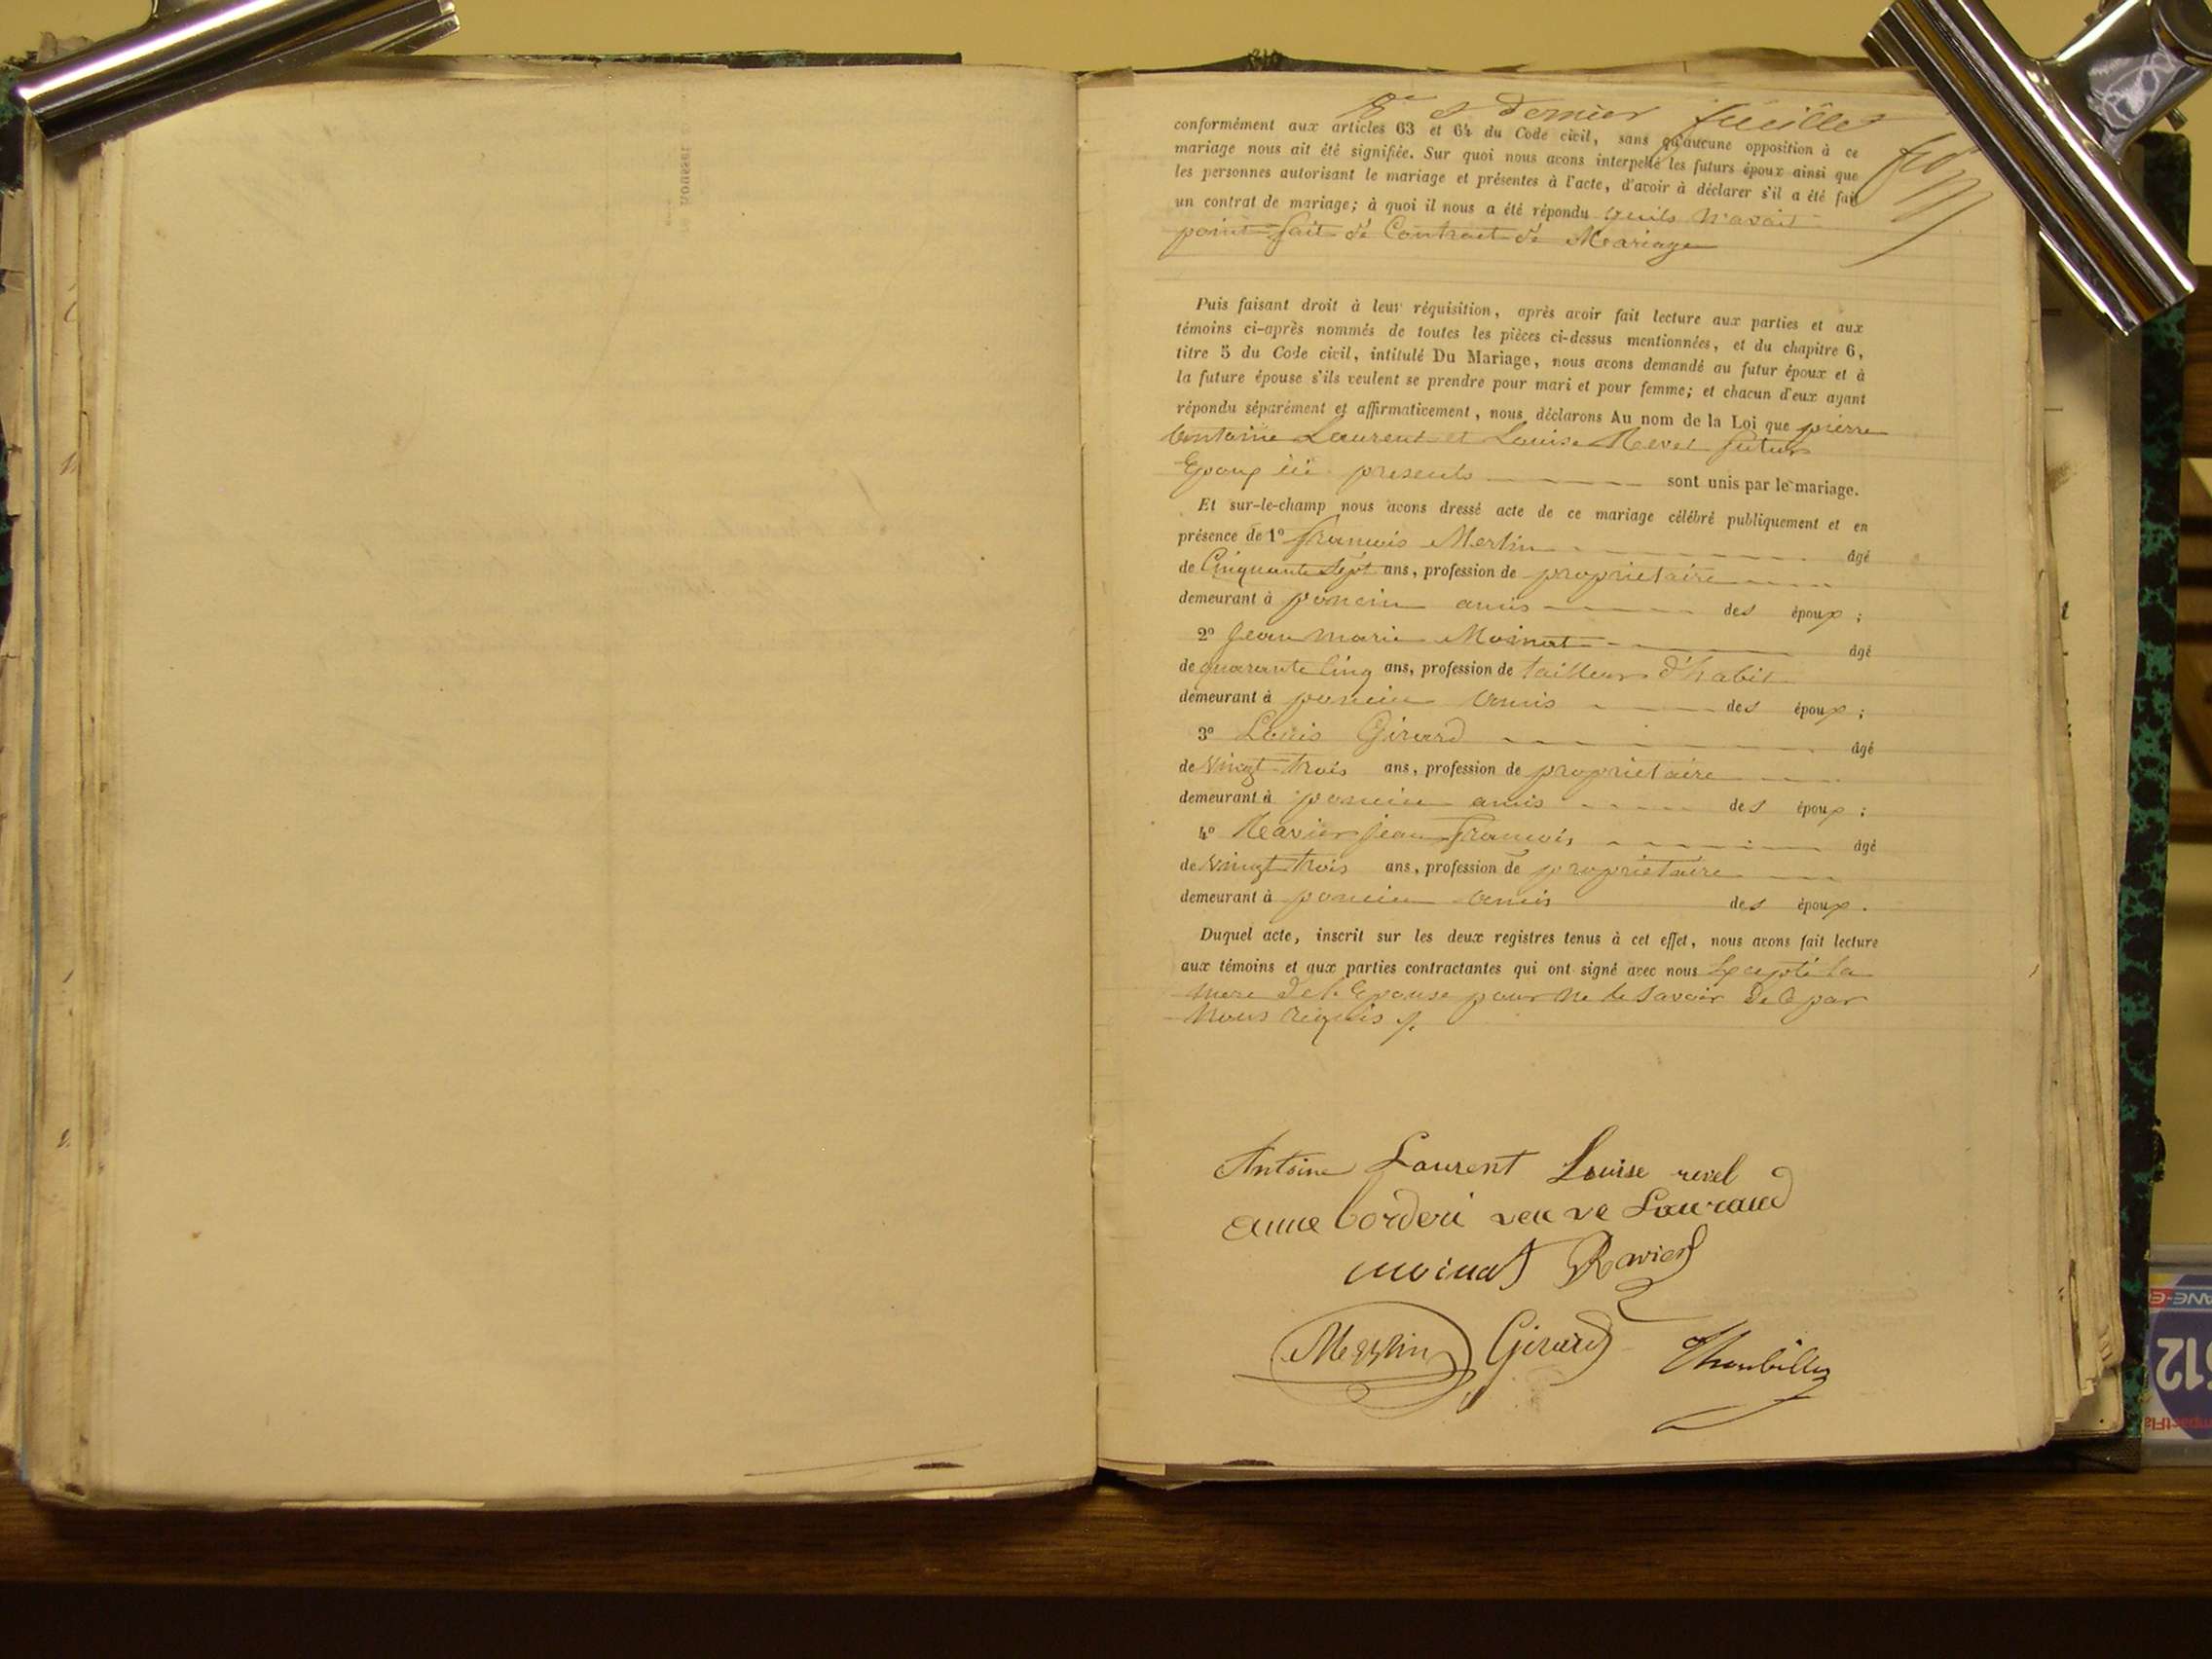 8e et dernier feuillet
conformément aux articles 63 et 64 du Code civil, sans qu'aucune opposition à ce
mariage nous ait été signifiée. Sur quoi nous avons interpellé les futurs époux ainsi que
les personnes autorisant le mariage et présentes à l'acte, d'avoir à déclarer s'il a été fait
un contrat de mariage; à quoi il nous a été répondu quils n'avait
point fait de Contract de Mariage
Puis faisant droit à leur réquisition, après avoir fait lecture aux parties et aux
témoins ci-après nommés de toutes les pièces ci-dessus mentionnées, et du chapitre 6,
titre 5 du Code civil, intitulé Du Mariage, nous avons demandé au futur époux et à
la future épouse s'ils veulent se prendre pour mari et pour femme; et chacun d'eux ayant
répondu séparément et affirmativement, nous déclarons Au nom de la Loi que pierre
Antoine Laurent et Louise Revel futurs
Epoux ici presents sont unis par le mariage.
Et sur-le-champ nous avons dressé acte de ce mariage célébré publiquement et en
présence de 1° francois Merlin âgé
de Cinquante Sept ans, profession de proprietaire
demeurant à poncin amis des époux ;
2° Jean marie Moinat âgé
de quarante Cinq ans, profession de tailleur d'habit
demeurant à poncin amis des époux ;
3° Louis Girard âgé
de Vingt trois ans, profession de proprietaire
demeurant à poncin amis des époux ;
4° Ravier jean francois âgé
de Vingt trois ans, profession de proprietaire
demeurant à poncin amis des époux.
Duquel acte, inscrit sur les deux registres tenus à cet effet, nous avons fait lecture
aux témoins et aux parties contractantes qui ont signé avec nous Excepté la
mere de l'Epouse pour ne le savoir de ce par
nous requis
Antoine Laurent Louise revel
anne borderi veuve Lauraud
moinat Ravier
Merlin Girard
512